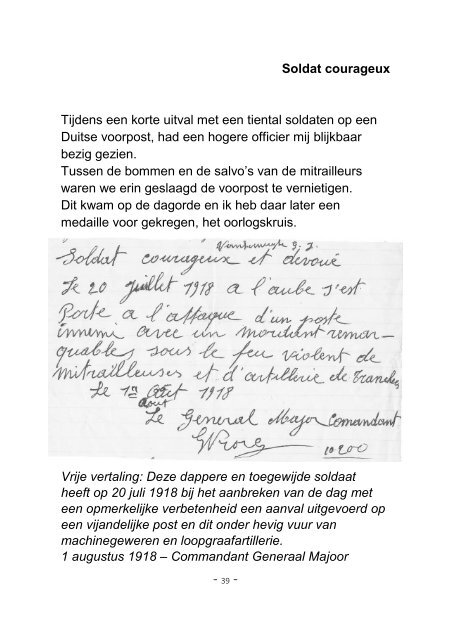 Soldat courageux
Tijdens een korte uitval met een tiental soldaten op een
Duitse voorpost, had een hogere officier mij blijkbaar
bezig gezien.
Tussen de bommen en de salvo's van de mitrailleurs
waren we erin geslaagd de voorpost te vernietigen.
Dit kwam op de dagorde en ik heb daar later een
medaille voor gekregen, het oorlogskruis.
Soldat courageux et dévoué
Le 20 Juillet 1918 a l'aube s'est
Porte a l'attaque d'un poste
innemi avec un mordant remar-
quables sous le feu violent de
mitrailleuses et d'artillerie de Tranches
Le 1er Oût 1918
Aout
Le General Major Comandant
10200
Vrije vertaling: Deze dappere en toegewijde soldaat
heeft op 20 juli 1918 bij het aanbreken van de dag met
een opmerkelijke verbetenheid een aanval uitgevoerd op
een vijandelijke post en dit onder hevig vuur van
machinegeweren en loopgraafartillerie.
1 augustus 1918 – Commandant Generaal Majoor
- 39 -